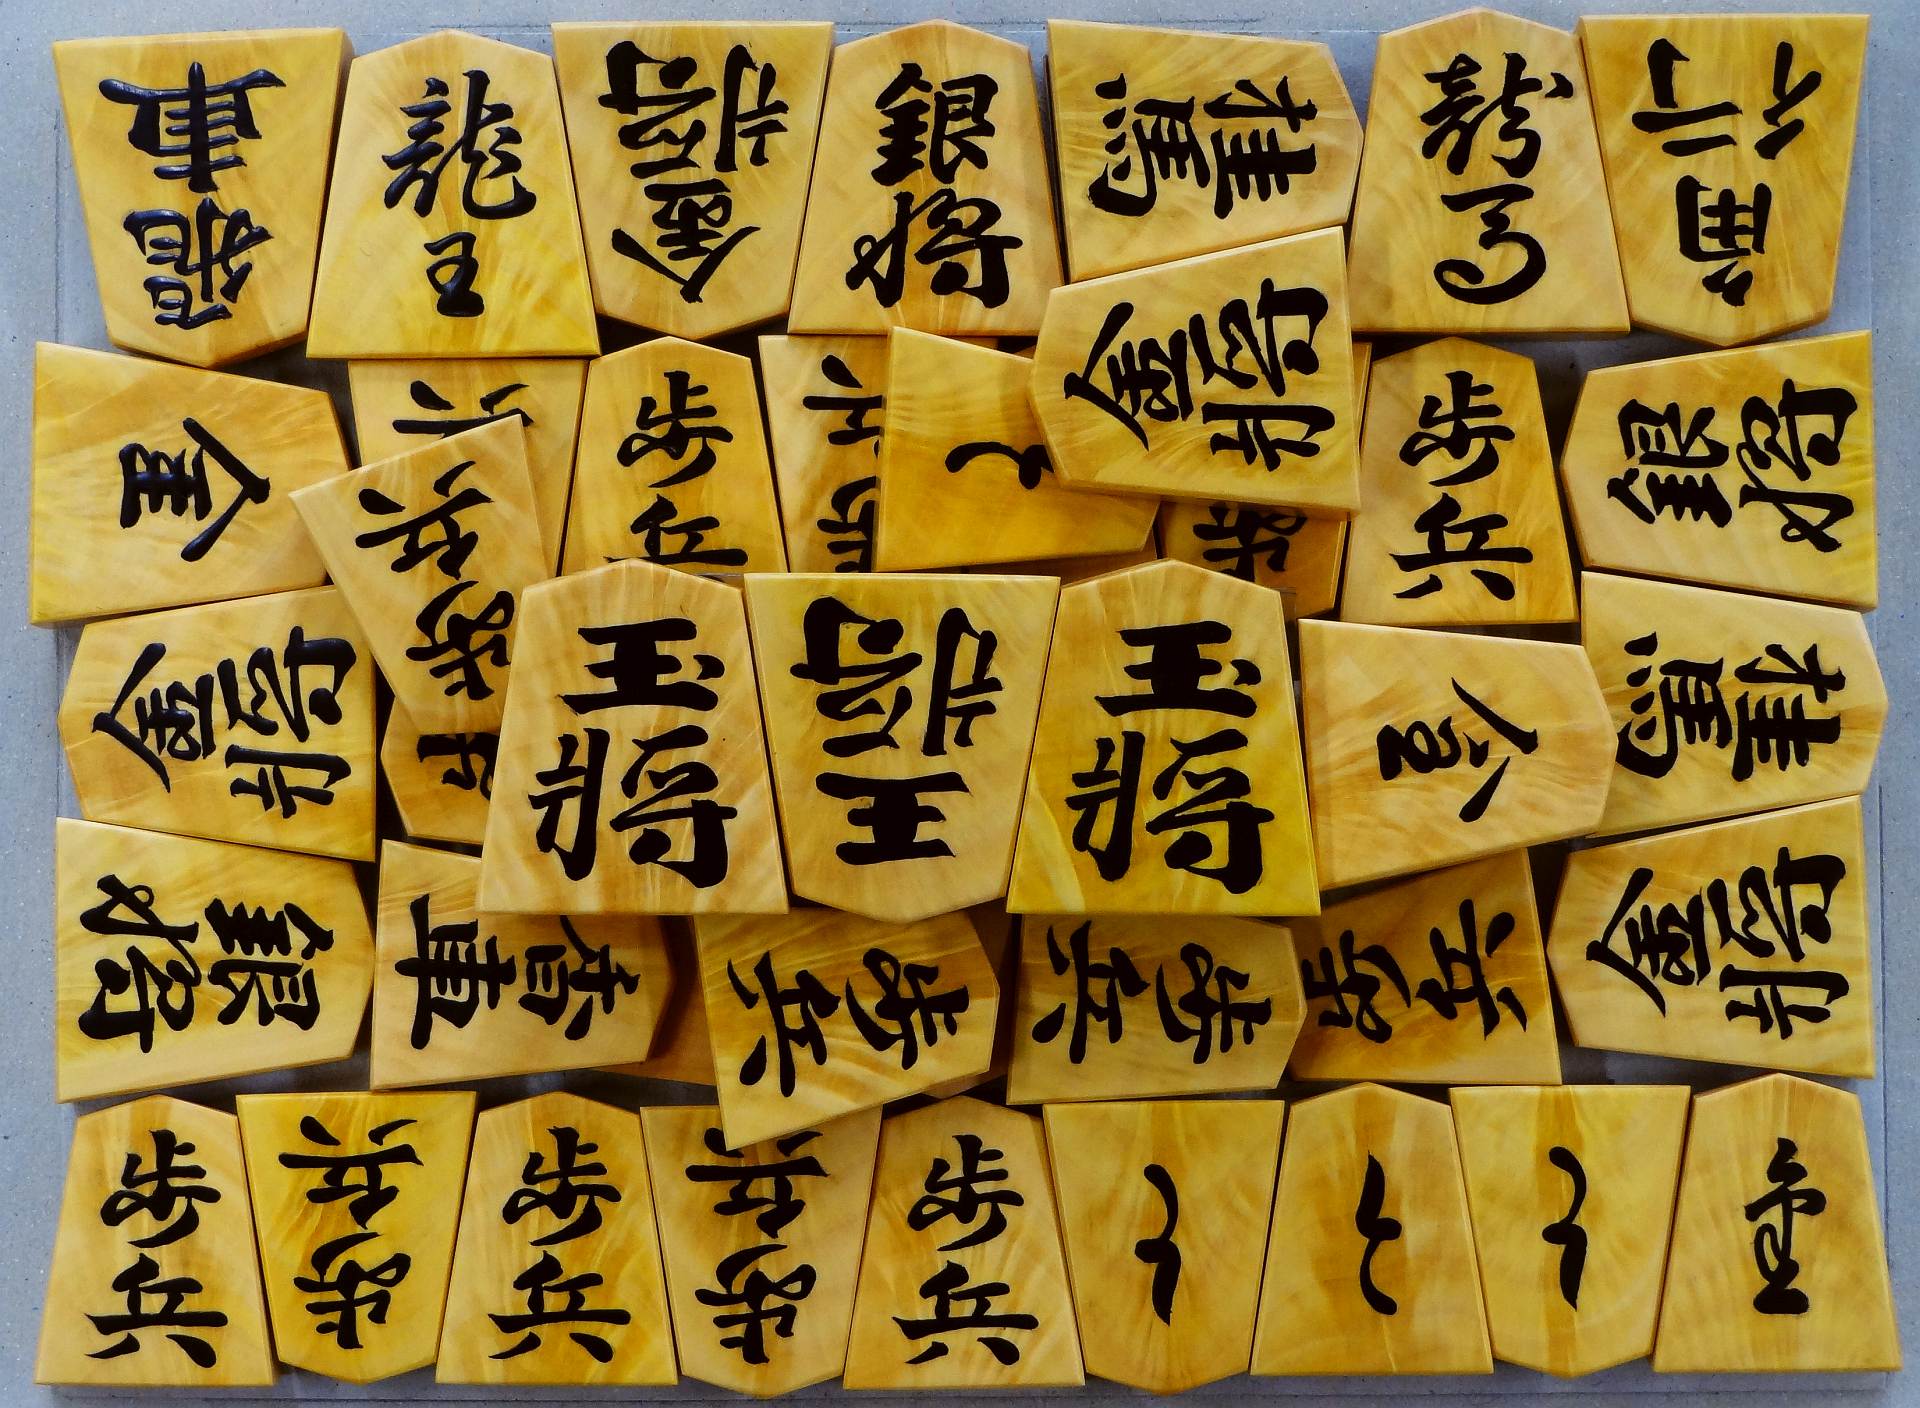 飛車
龍王
金将
銀将
桂馬
龍馬
角行
金将
金
歩兵
歩兵
銀将
歩兵
金将
玉将
王将
玉将
桂馬
銀将
香車
歩兵
歩兵
歩兵
金将
歩兵
歩兵
歩兵
歩兵
歩兵
と
と
と